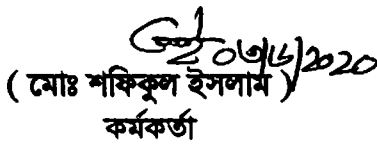 ০৩/৬/২০২০
( মোঃ শফিকুল ইসলাম )
কর্মকর্তা